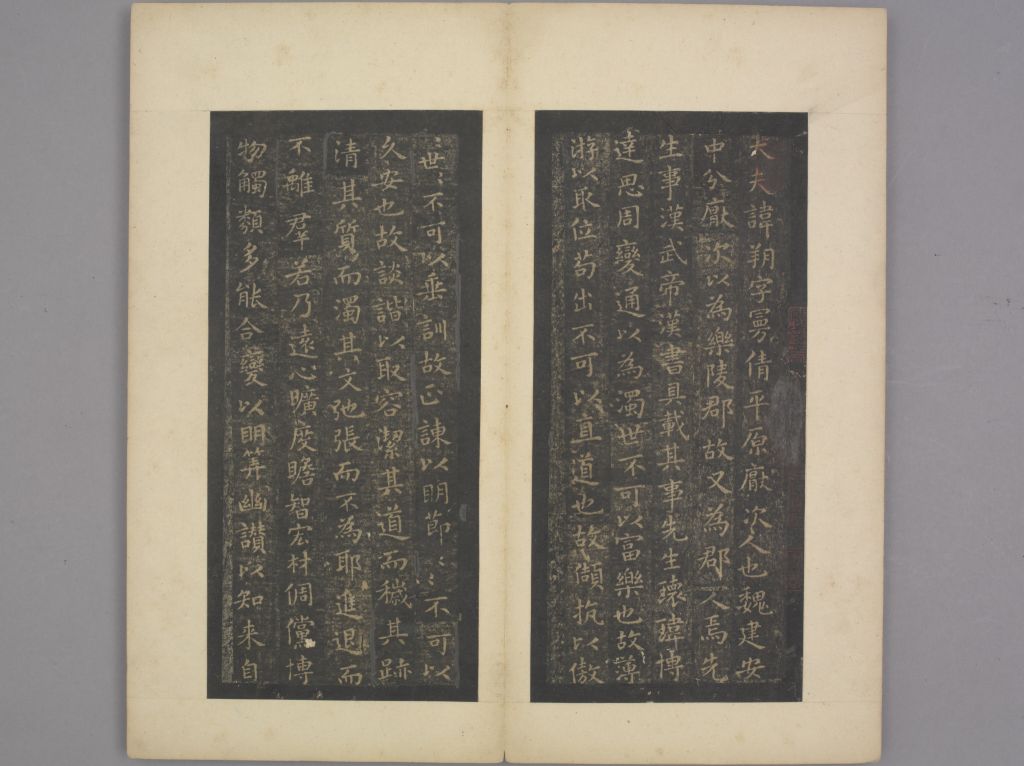 大夫諱朔字曼倩平原厭次人也魏建安
中分厭次以為樂陵郡故又為郡人焉先
生事漢武帝漢書具載其事先生瓌瑋博
達思周變通以為濁世不可以富樂也故薄
游以取位苟出不可以直道也故頡抗以傲
〻世〻不可以垂訓故正諫以明節〻〻不可以
久安也故談諧以取容潔其道而穢其跡
清其質而濁其文弛張而不為耶進退而
不離群若乃遠心曠度贍智宏材倜儻博
物觸類多能合變以明筭幽讚以知來自